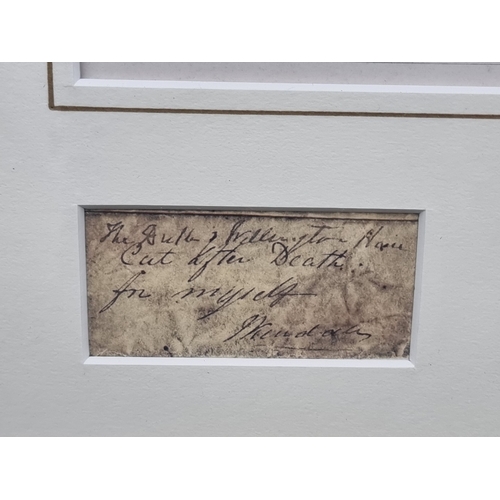 The Duke of Wellington Hair
Cut After Death.
for myself
J Kendall